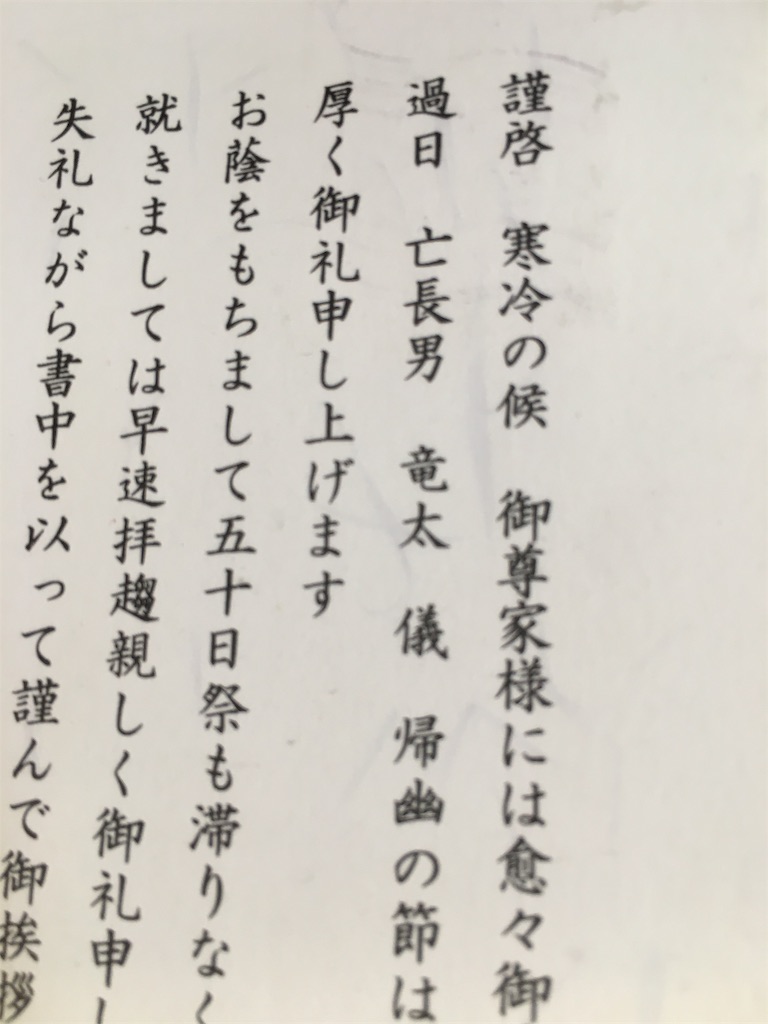 謹啓　寒冷の候　御尊家様には愈々御
過日　亡長男　竜太　儀　帰幽の節は
厚く御礼申し上げます
お蔭をもちまして五十日祭も滞りなく
就きましては早速拝趨親しく御礼申し
失礼ながら書中を以って謹んで御挨拶